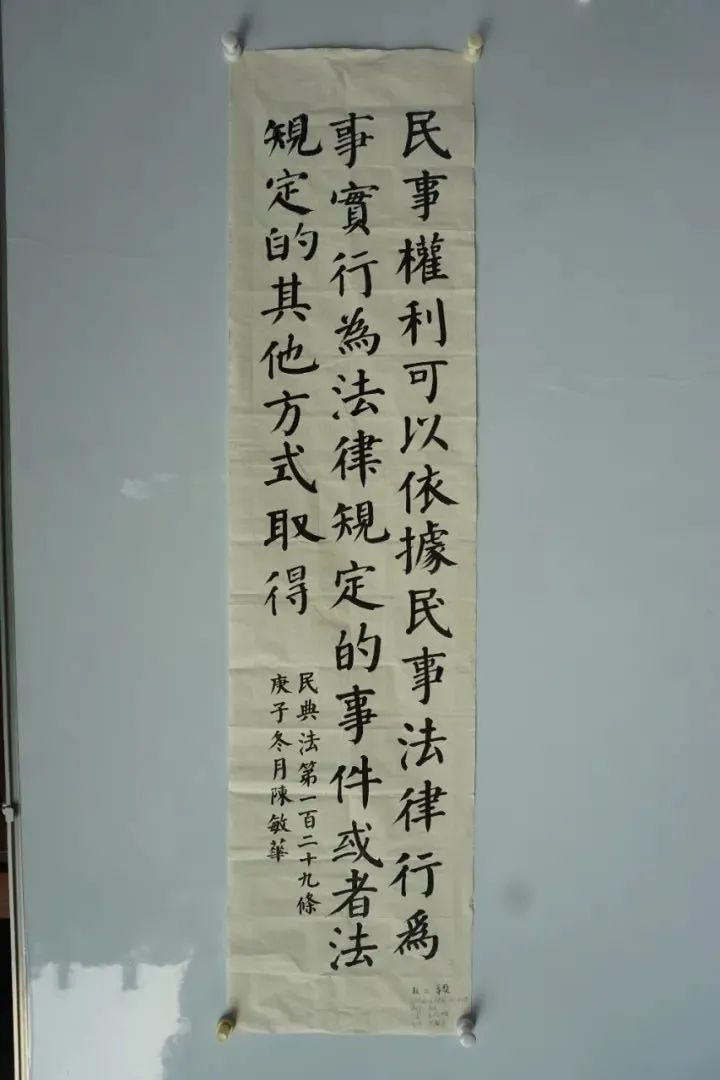 民事權利可以依據民事法律行為
事實行為法律規定的事件或者法
規定的其他方式取得
民典法第一百二十九條
庚子冬月陳敏華